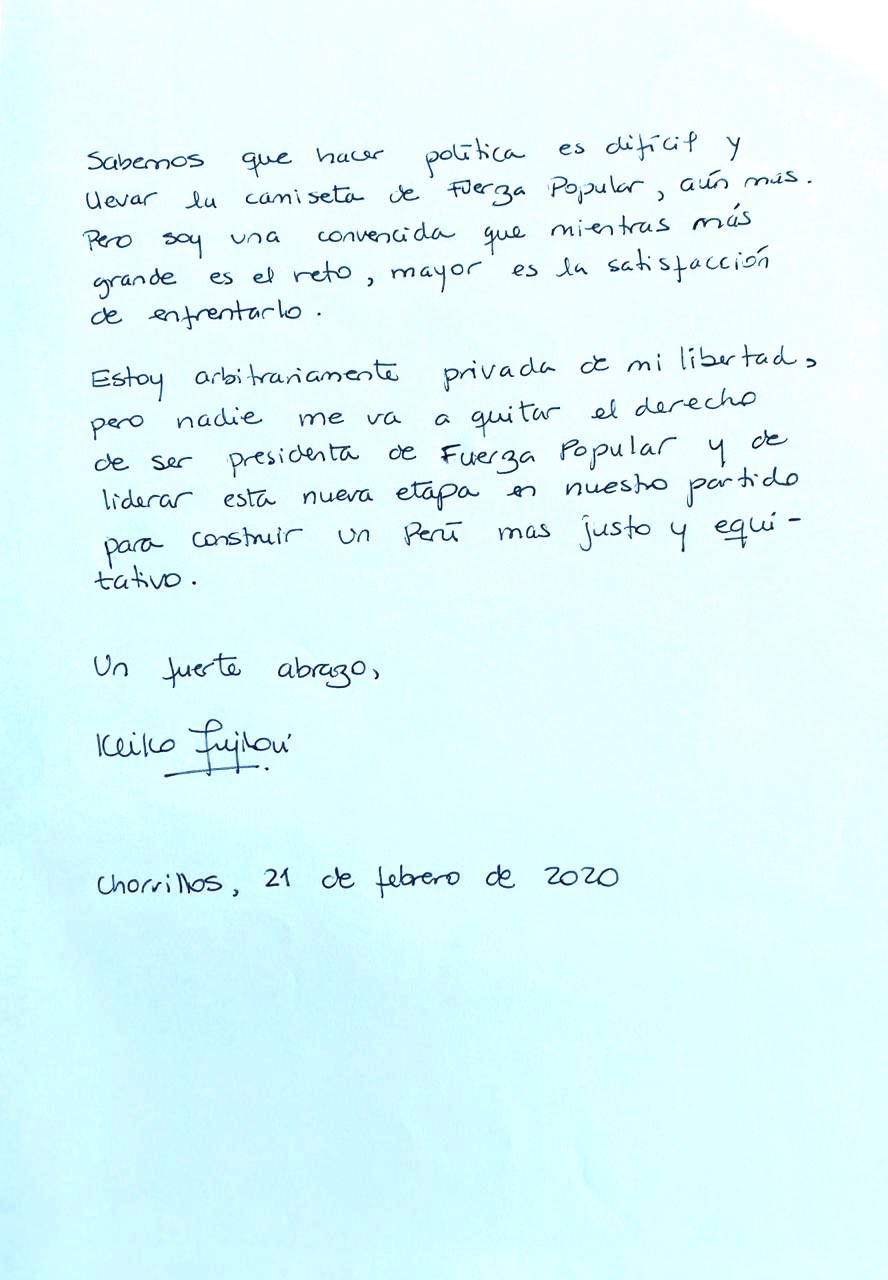 Sabemos que hacer política es difícil y
llevar la camiseta de Fuerza Popular, aún más.
Pero soy una convencida que mientras más
grande es el reto, mayor es la satisfacción
de enfrentarlo.
Estoy arbitrariamente privada de mi libertad,
pero nadie me va a quitar el derecho
de ser presidenta de Fuerza Popular y de
liderar esta nueva etapa en nuestro partido
para construir un Perú mas justo y equi-
tativo.
Un fuerte abrazo,
Keiko Fujimori
Chorrillos, 21 de febrero de 2020